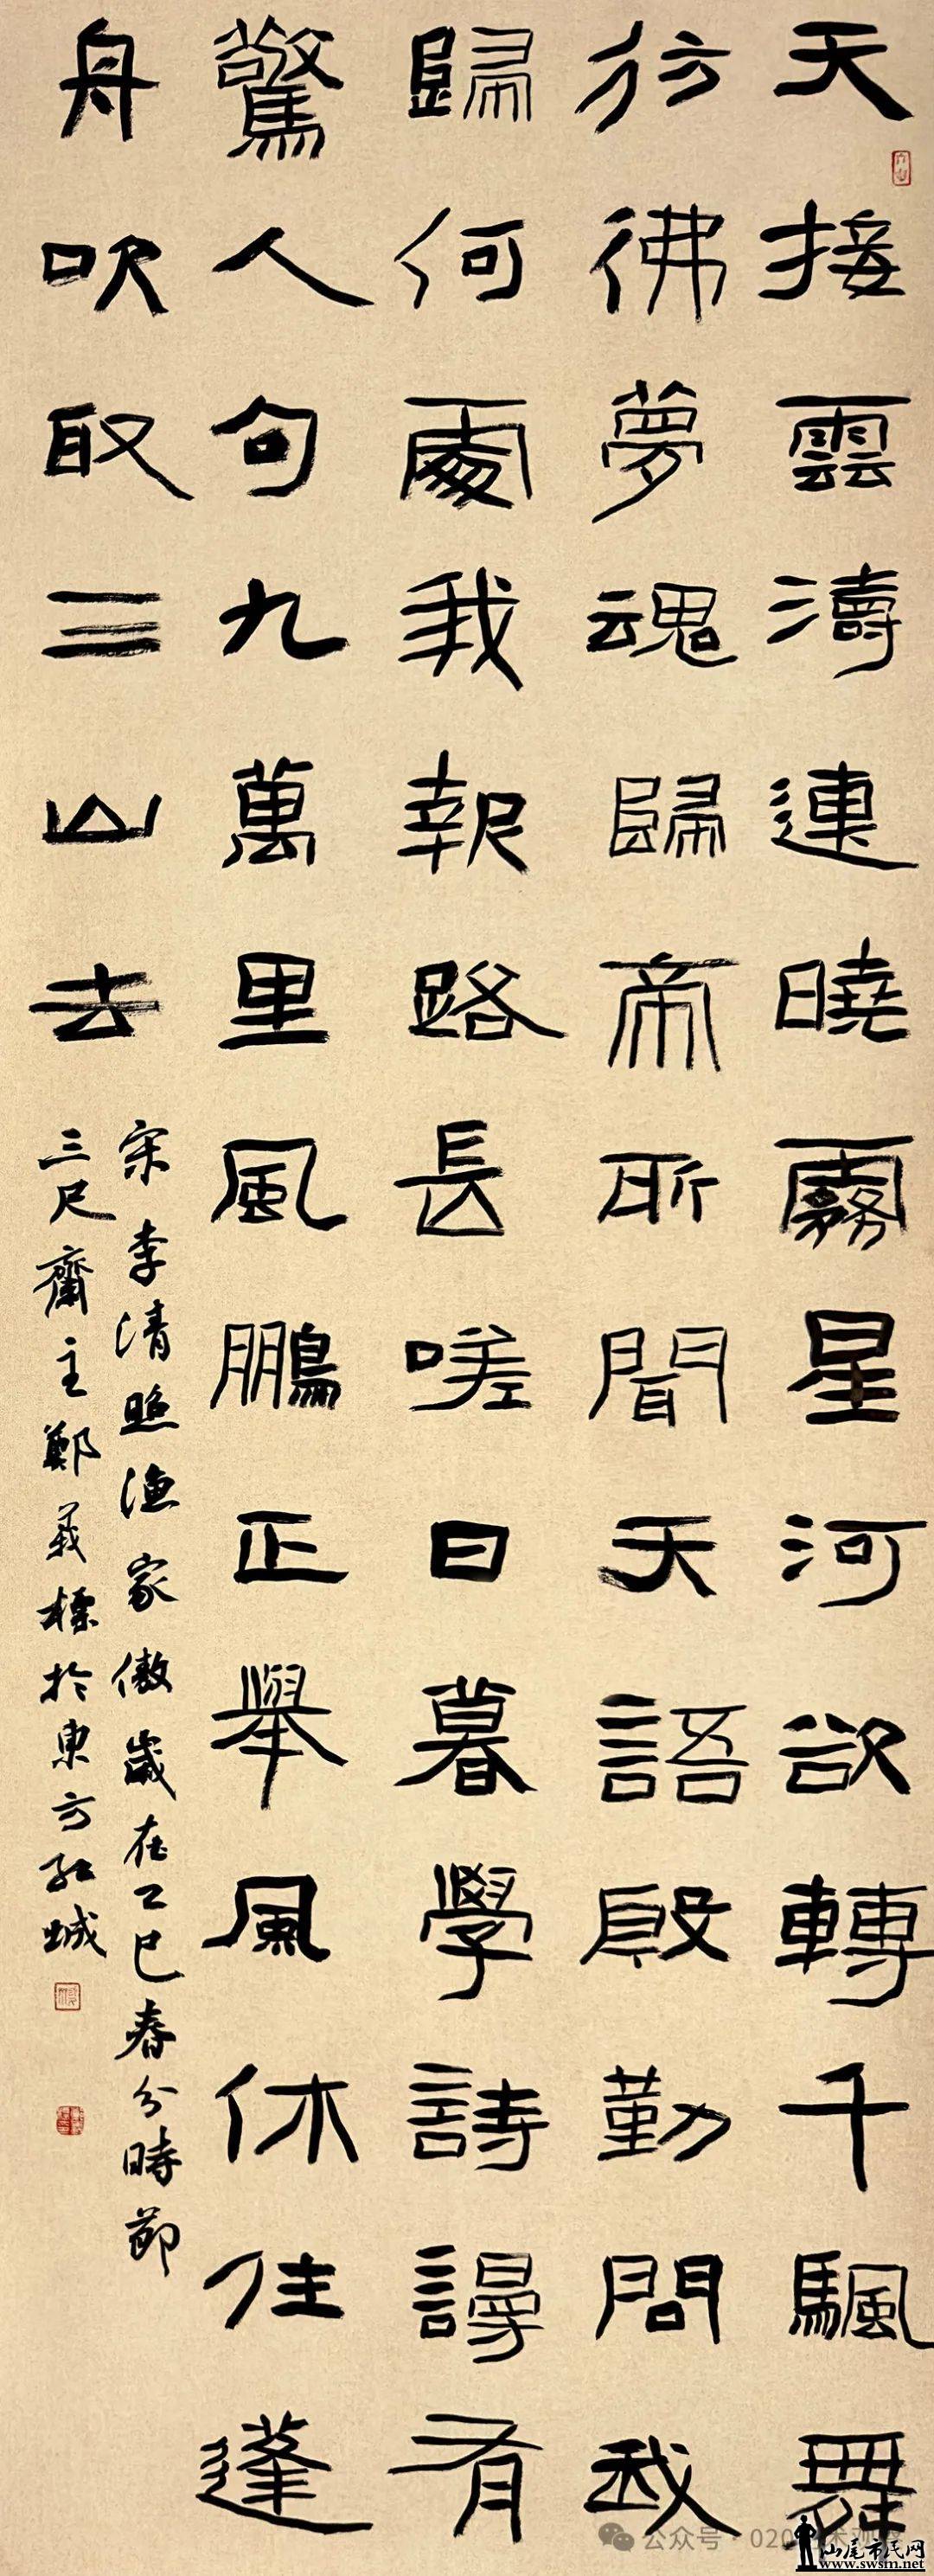 天接雲濤連曉霧星河欲轉千颿舞
彷彿夢魂歸帝所聞天語殷勤問我
歸何處我報路長嗟日暮學詩謾有
驚人句九萬里風鵬正舉風休住蓬
舟吹取三山去
宋李清照漁家傲歲在乙巳春分時節
三尺齋主鄭義標於東方紅城
公众号 · 020
汕尾市民网
www.swsm.net